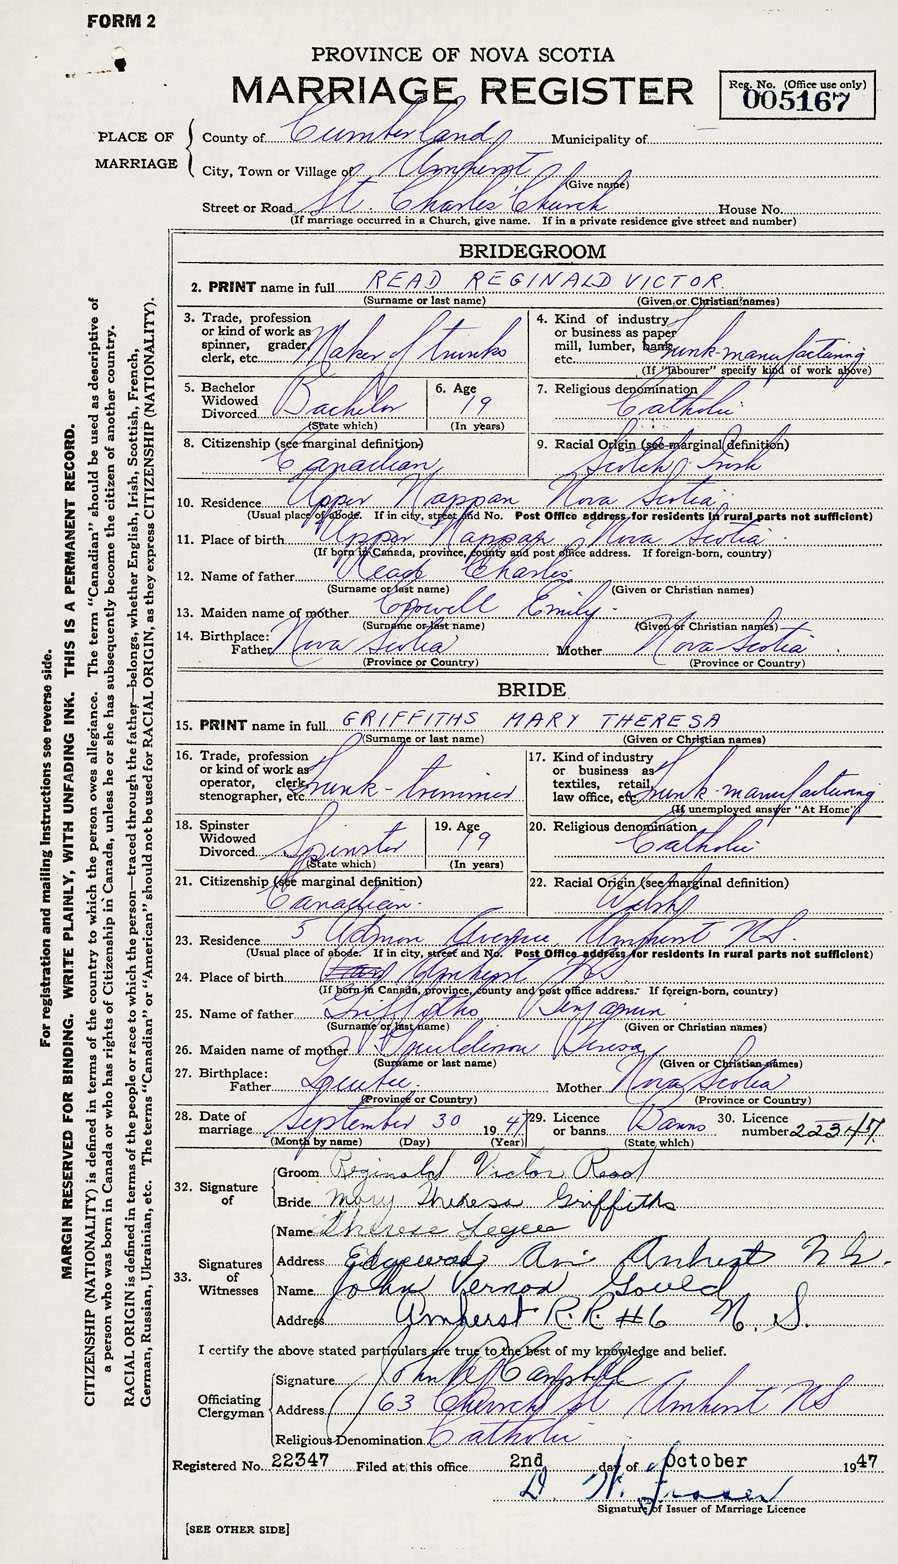 FORM 2
PROVINCE OF NOVA SCOTIA
MARRIAGE REGISTER
Reg. No. (Office use only)
005167
PLACE OF MARRIAGE
County of Cumberland Municipality of —
City, Town or Village of Amherst
(Give name)
Street or Road St. Charles' Church House No.
(If marriage occurred in a Church, give name. If in a private residence give street and number)
BRIDEGROOM
2. PRINT name in full READ REGINALD VICTOR.
(Surname or last name) (Given or Christian names)
3. Trade, profession or kind of work as spinner, grader, clerk, etc. Maker of trunks
4. Kind of industry or business as paper mill, lumber, bank, etc. Trunk-manufacturing
(If "labourer" specify kind of work above)
5. Bachelor Widowed Divorced Bachelor
(State which)
6. Age 19
(In years)
7. Religious denomination Catholic
8. Citizenship (see marginal definition) Canadian
9. Racial Origin (see marginal definition) Scotch-Irish
10. Residence Upper Nappan Nova Scotia
(Usual place of abode. If in city, street and No. Post Office address for residents in rural parts not sufficient)
11. Place of birth Upper Nappan Nova Scotia
(If born in Canada, province, county and post office address. If foreign-born, country)
12. Name of father Read Charles
(Surname or last name) (Given or Christian names)
13. Maiden name of mother Crowell Emily
(Surname or last name) (Given or Christian names)
14. Birthplace: Father Nova Scotia Mother Nova Scotia
(Province or Country) (Province or Country)
BRIDE
15. PRINT name in full GRIFFITHS MARY THERESA
(Surname or last name) (Given or Christian names)
16. Trade, profession or kind of work as operator, clerk, stenographer, etc. Trunk-trimmer
17. Kind of industry or business as textiles, retail, law office, etc. Trunk-manufacturing
(If unemployed answer "At Home")
18. Spinster Widowed Divorced Spinster
(State which)
19. Age 19
(In years)
20. Religious denomination Catholic
21. Citizenship (see marginal definition) Canadian
22. Racial Origin (see marginal definition) Welsh
23. Residence 5 Avenue Amherst NS.
(Usual place of abode. If in city, street and No. Post Office address for residents in rural parts not sufficient)
24. Place of birth Amherst NS
(If born in Canada, province, county and post office address. If foreign-born, country)
25. Name of father Griffiths Benjamin
(Surname or last name) (Given or Christian names)
26. Maiden name of mother Teresa
(Surname or last name) (Given or Christian names)
27. Birthplace: Father Quebec Mother Nova Scotia
(Province or Country) (Province or Country)
28. Date of marriage September 30 1947
(Month by name) (Day) (Year)
29. Licence or banns Banns
(State which)
30. Licence number 22347
32. Signature of
Groom Reginald Victor Read
Bride Mary Theresa Griffiths
33. Signatures of Witnesses
Name Therese Legere
Address Edgewood Av Amherst N S.
Name John Vernon Gould
Address Amherst R.R. #6 N. S.
I certify the above stated particulars are true to the best of my knowledge and belief.
Officiating Clergyman
Signature John Campbell
Address 63 Church St Amherst NS
Religious Denomination Catholic
Registered No. 22347 Filed at this office 2nd day of October 1947
D. W. Fraser
Signature of Issuer of Marriage Licence
[SEE OTHER SIDE]
For registration and mailing instructions see reverse side.
MARGIN RESERVED FOR BINDING. WRITE PLAINLY, WITH UNFADING INK. THIS IS A PERMANENT RECORD.
CITIZENSHIP (NATIONALITY) is defined in terms of the country to which the person owes allegiance. The term "Canadian" should be used as descriptive of
a person who was born in Canada or who has rights of Citizenship in Canada, unless he or she has subsequently become the citizen of another country.
RACIAL ORIGIN is defined in terms of the people or race to which the person—traced through the father—belongs, whether English, Irish, Scottish, French,
German, Russian, Ukrainian, etc. The terms "Canadian" or "American" should not be used for RACIAL ORIGIN, as they express CITIZENSHIP (NATIONALITY).